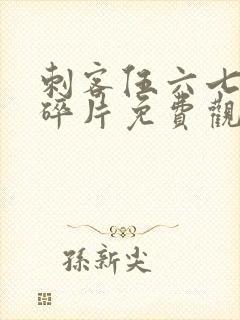 刺客伍六七
碎片免費觀
孫新尖